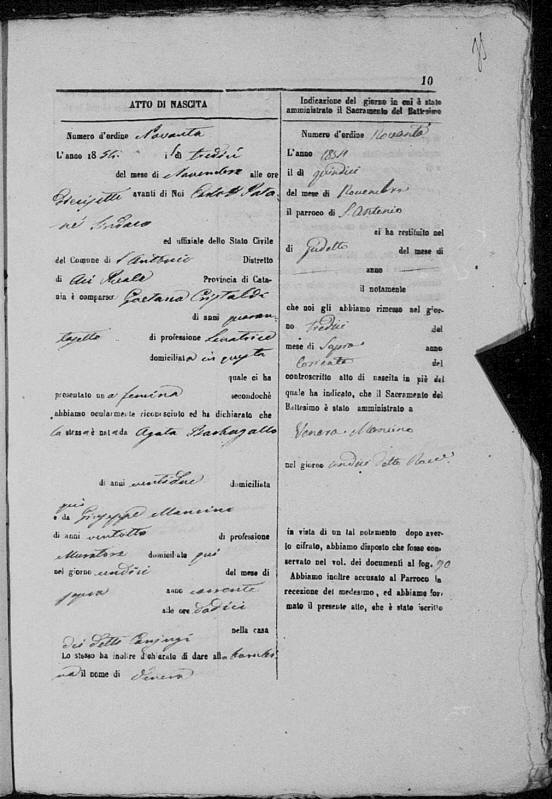 10
ATTO DI NASCITA
Numero d'ordine Novanta
L'anno 1854 il dì tredici
del mese di Novembre alle ore
diecisette avanti di Noi
Sindaco
ed uffiziale dello Stato Civile
del Comune di S. Antonio Distretto
di Aci Reale Provincia di Cata-
nia è comparsa Gaetana Cristaldi
di anni quaran-
tasette di professione Levatrice
domiciliata in questa
quale ci ha
presentato una femina secondochè
abbiamo ocularmente riconosciuto ed ha dichiarato che
la stessa è nata da Agata Barbagallo
di anni ventidue domiciliata
qui
e da Giuseppe Mancino
di anni ventotto di professione
Muratore domiciliato qui
nel giorno undici del mese di
sopra anno corrente
alle ore dodici
nella casa
dei detti Coniugi
Lo stesso ha inoltre dichiarato di dare alla bambi-
na il nome di Venera
Indicazione del giorno in cui è stato
amministrato il Sacramento del Battesimo
Numero d'ordine Novanta
L'anno 1854
il dì quindici
del mese di Novembre
il parroco di S. Antonio
ci ha restituito nel
dì sudetto del mese di
anno
il notamento
che noi gli abbiamo rimesso nel gior-
no tredici del
mese di Sopra anno
Corrente del
controscritto atto di nascita in piè del
quale ha indicato, che il Sacramento del
Battesimo è stato amministrato a
Venera Mancino
nel giorno undici detto
in vista di un tal notamento dopo aver-
lo cifrato, abbiamo disposto che fosse con-
servato nel vol. dei documenti al fog. 90
Abbiamo inoltre accusato al Parroco la
recezione del medesimo, ed abbiamo for-
mato il presente atto, che è stato iscritto